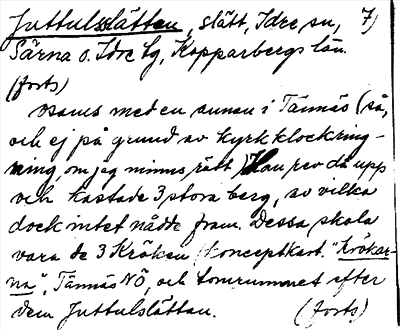 Juttulslätten, slätt, Idre sn, 7)
Särna o. Idre tg, Kopparbergs län.
(forts)
osams med en annan i Tännäs (så,
och ej på grund av kyrkklockring-
ning, om jag minns rätt) Han rev då upp
och kastade 3 stora berg, av vilka
dock intet nådde fram. Dessa skola
vara de 3 Kröken (konceptkart. "Krökar-
na", Tännäs NÖ, och tomrummet efter
dem Juttulslättan. (forts)